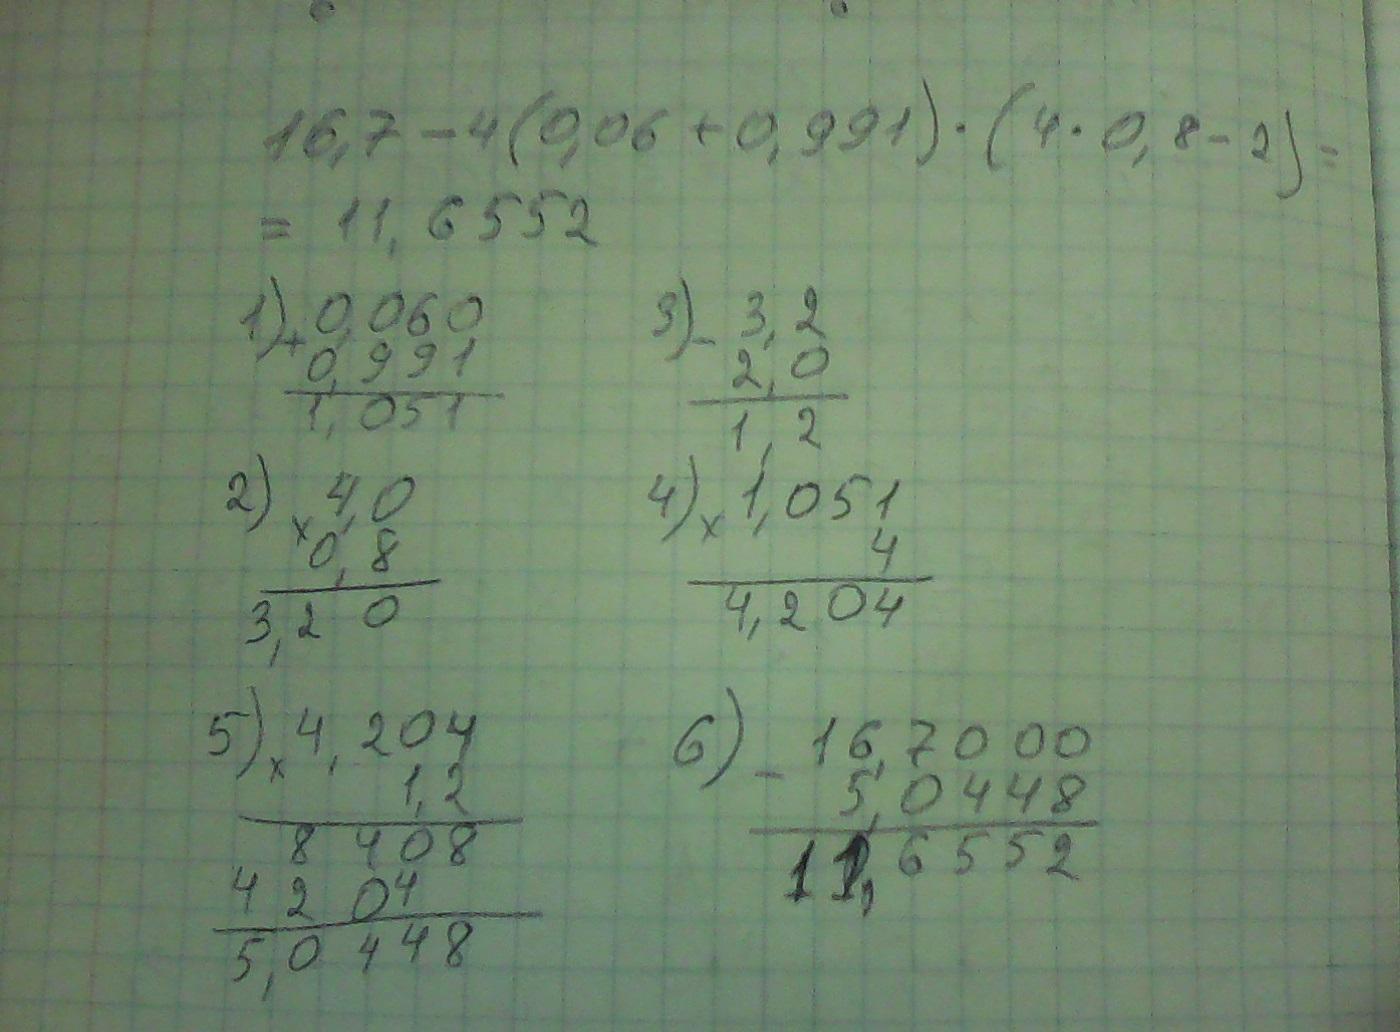 16,7 - 4(0,06 + 0,991) · (4 · 0,8 - 2) =
= 11,6552
1) + 0,060
0,991
1,051
3) - 3,2
2,0
1,2
2) x 4,0
0,8
3,20
4) x 1,051
4
4,204
5) x 4,204
1,2
8408
4204
5,0448
6) - 16,7000
5,0448
11,6552